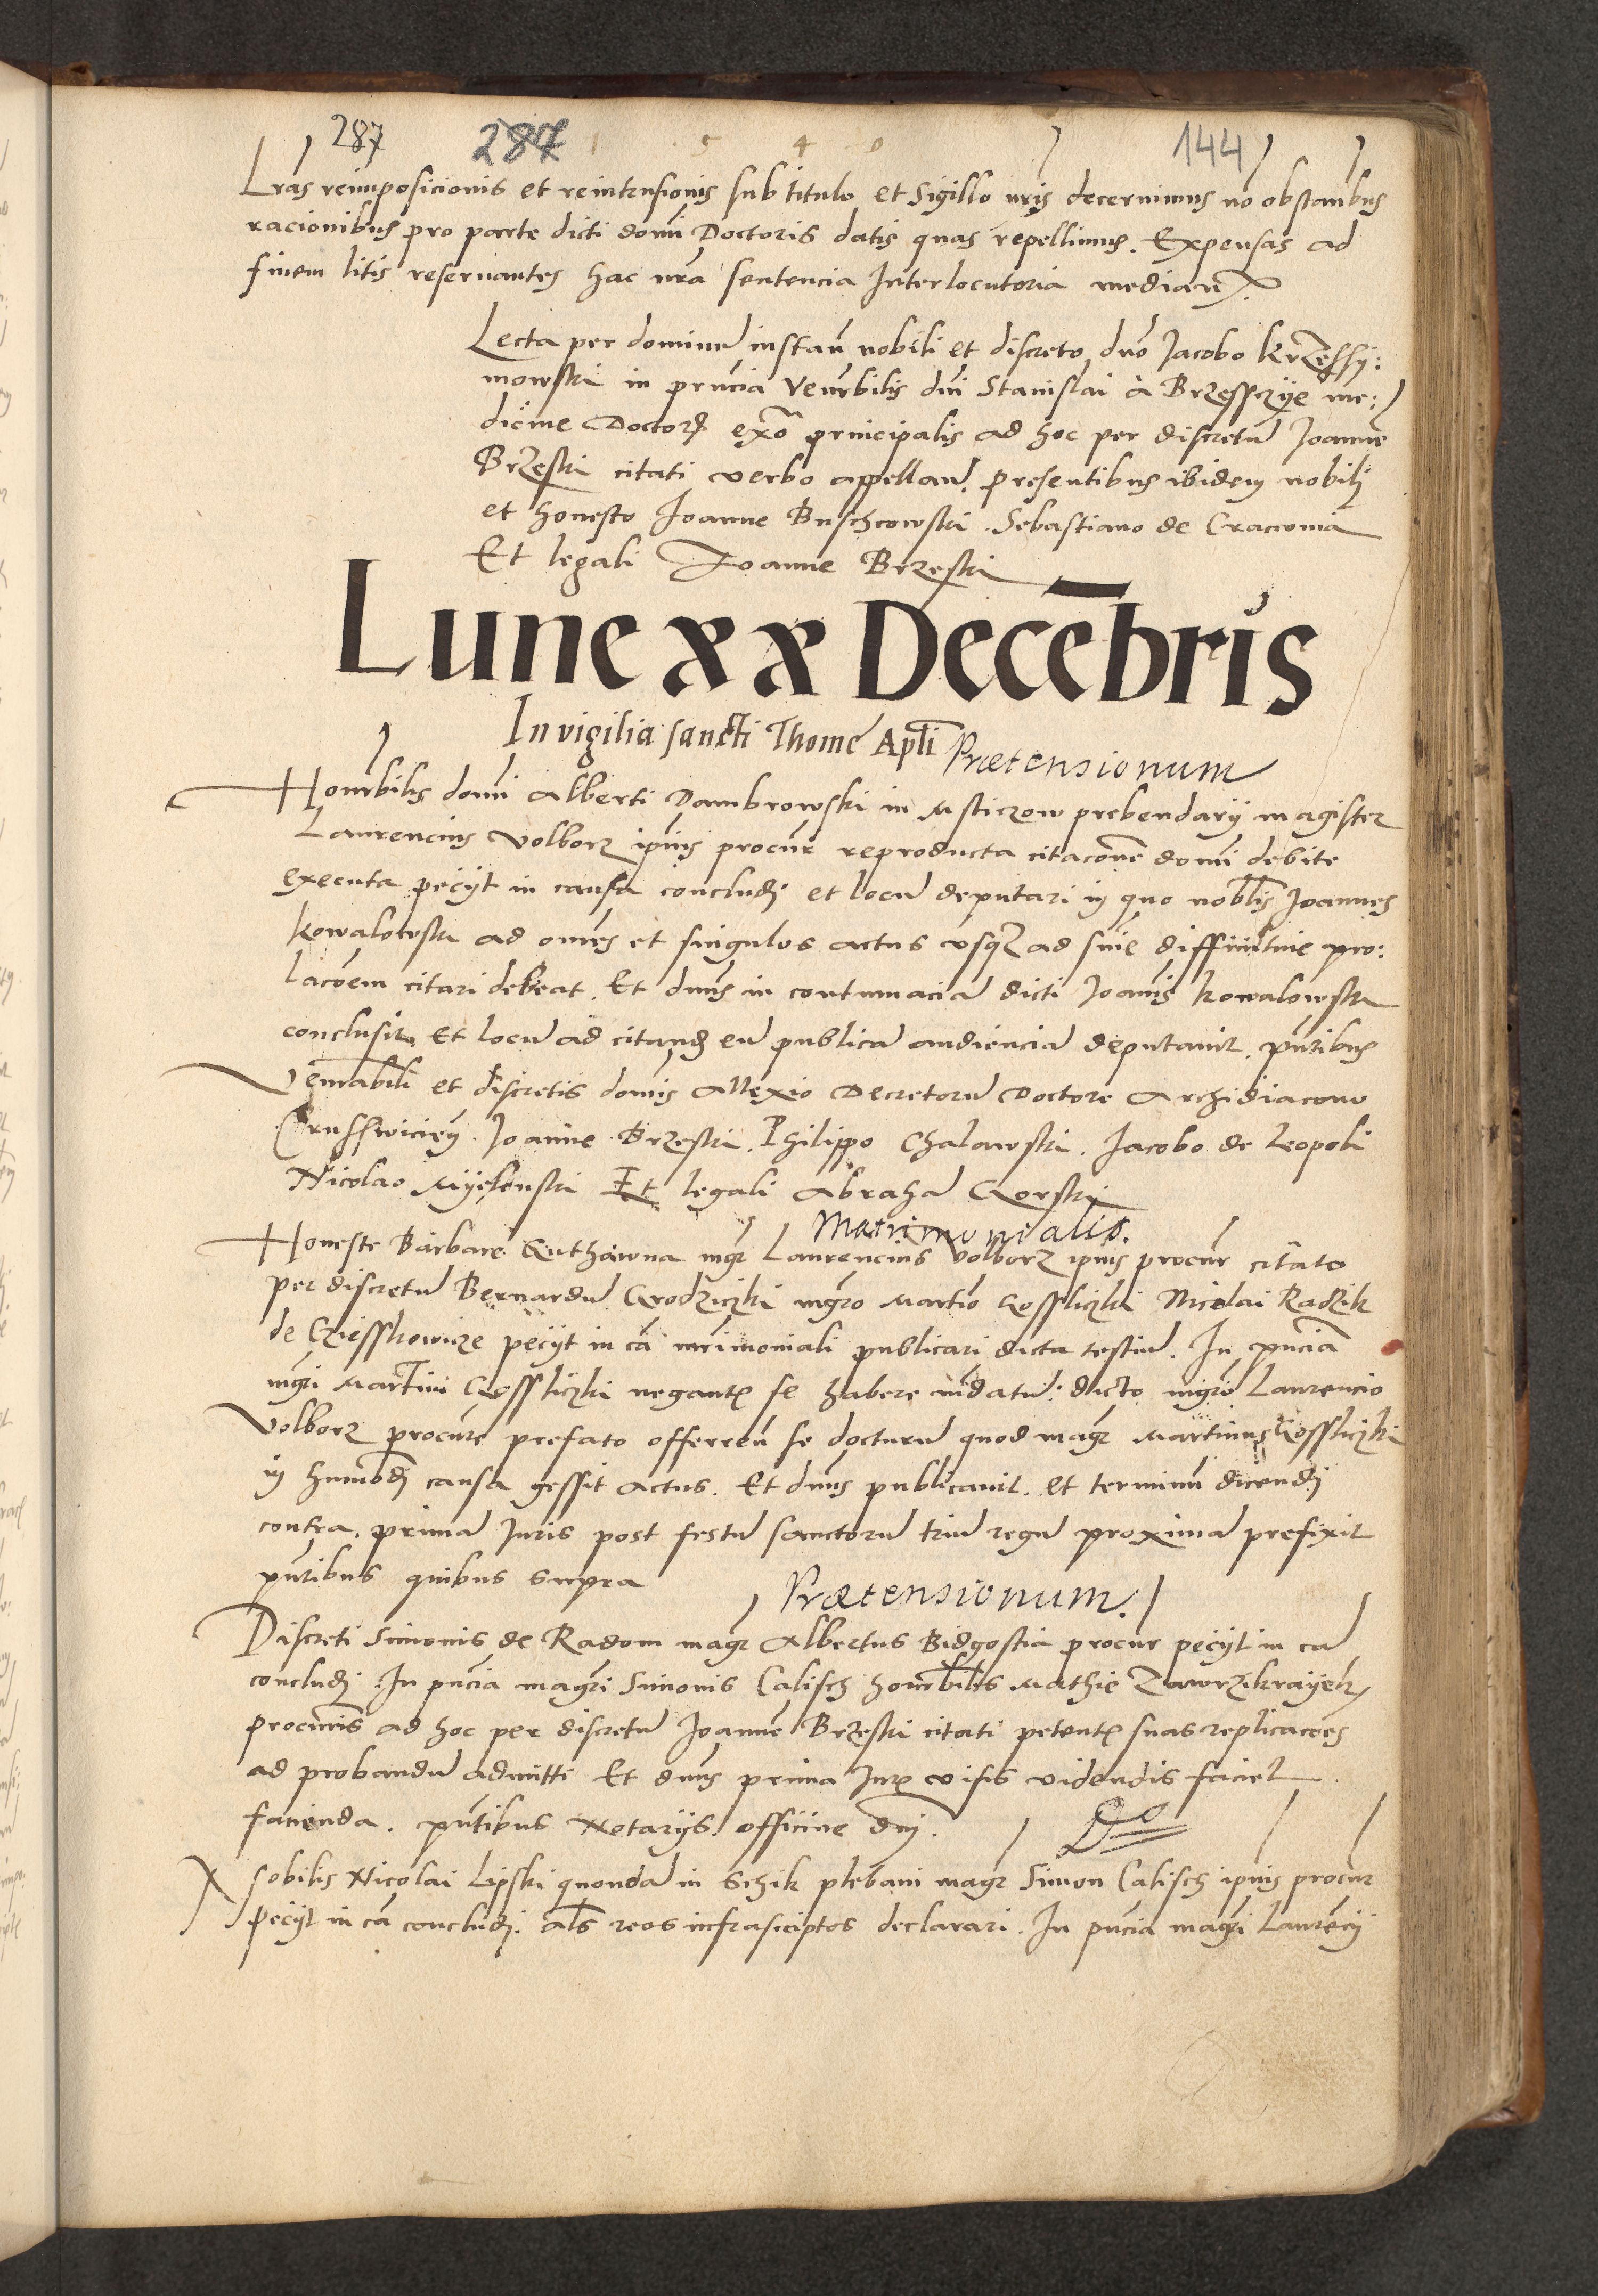 287 287 1 5 4 0 144
Lras reimposicionis et reintrusionis sub titulo et Sigillo nris decernimus no obstantibus
racionibus pro parte dicti domi Doctoris datis quas repellimus. Expensas ad
finem litis reservantes hac nra sentencia Interlocutoria median
Lecta per dominu instan nobili et discreto dno Jacobo Krzessy:
mowski in pnncia Venrbilis dni Stanislai à Brzesszye me:
dicine Doctor exo principalis ad hoc per discretu Joanne
Brzeski citati verbo appellan. presentibus ibidem nobili
et honesto Joanne Buschcowski. Sebastiano de Cracovia
Et legali Joanne Brzeski
Lune xx Decebris
In vigilia sancti Thome Apli Prætensionum
Honrbilis domi Alberti Dambrowski in Msticzow prebendarij magister
Laurencius Volborz ipius procur reproducta citacone domi debite
executa pecijt in causa concludi et locu deputari in quo noblis Joannes
Kowalowski ad omes et singulos actus usq ad snie diffinitive pro:
lacoem citari debeat. Et dnus in contumacia dicti Joanis Kowalowski
conclusit et locu ad citand eu publica audiencia deputavit. pntibus
Venrabili et discretis domis Allexio Decretoru Doctore Archidiacono
Crusswicien. Joanne Brzeski. Philippo Chalawski. Jacobo de Leopoli
Nicolao Myelenski Et legali Abraha Gorski
Matrimonialis.
Honeste Barbare Guthawna mgr Laurencius Volborz ipius procur citato
per discretu Bernardu Grodziczki mgro Martio Gossliczki Nicolai Radzik
de Cziesskowicze pecijt in ca mrimoniali publicari dicta testiu. In pncia
mgri Martini Gossliczki negant se habere mdatu: dicto mgro Laurencio
Volborz procure prefato offeren se docturu quod magr Martinus Gosslicyki
in hmoi causa gessit actus. Et dnus publicavit. et terminu dicendi
contra. prima Juris post festu sanctoru triu regu proxima prefixit
pntibus quibus supra
Prætensionum.
Discreti Simonis de Radom magr Albertus Bidgostia procur pecijt in ca
concludi. In pncia magri Simonis Calisch honrbilis Mathie Zawrzikrayek
procuris ad hoc per discretu Joanne Brzeski citati petent suas replicacoes
ad probandu admitti Et dnus prima Jur visis videndis faciet
facienda. pntibus Notarijs officine dni.
Do
Nobilis Nicolai Lipski quonda in Schik plebani magr Simon Calisch ipius procur
pecijt in ca concludi. als reos infrascriptos declarari. In pncia magri Laurecij